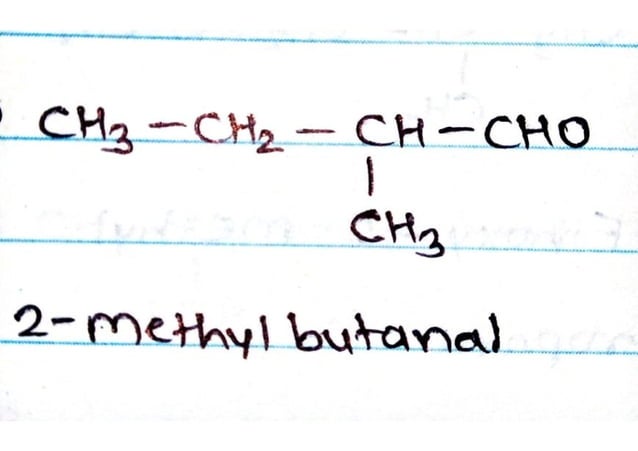 CH3-CH2-CH-CHO
|
CH3
2-methyl butanal